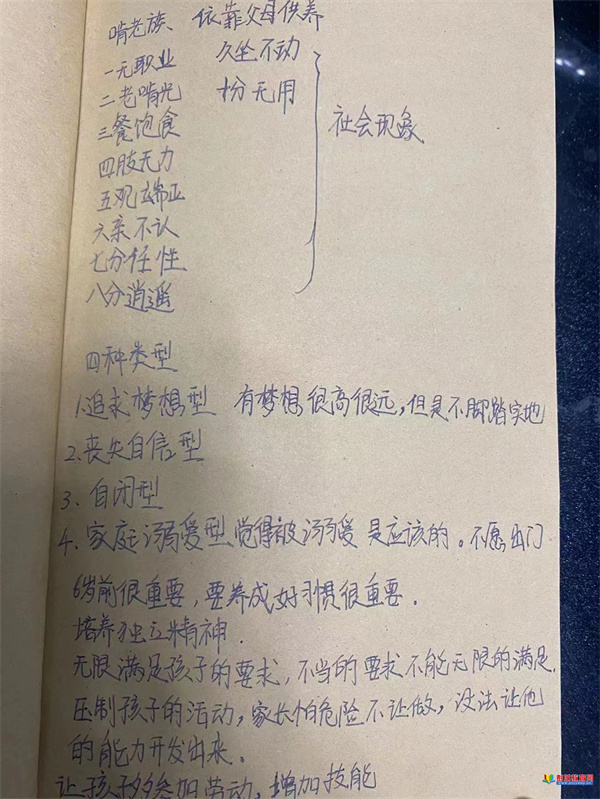 啃老族、依靠父母供养
一无职业 久坐不动
二老啃光 十分无用
三餐饱食
四肢无力
五观端正
六亲不认
七分任性
八分逍遥
社会现象
四种类型
1.追求梦想型 有梦想很高很远,但是不脚踏实地
2.丧失自信型
3、自闭型
4、家庭溺爱型 觉得被溺爱是应该的。不愿出门
6岁前很重要,要养成好习惯很重要.
培养独立精神.
无限满足孩子的要求,不当的要求不能无限的满足.
压制孩子的活动,家长怕危险不让做,没法让他
的能力开发出来.
让孩子多参加劳动,增加技能